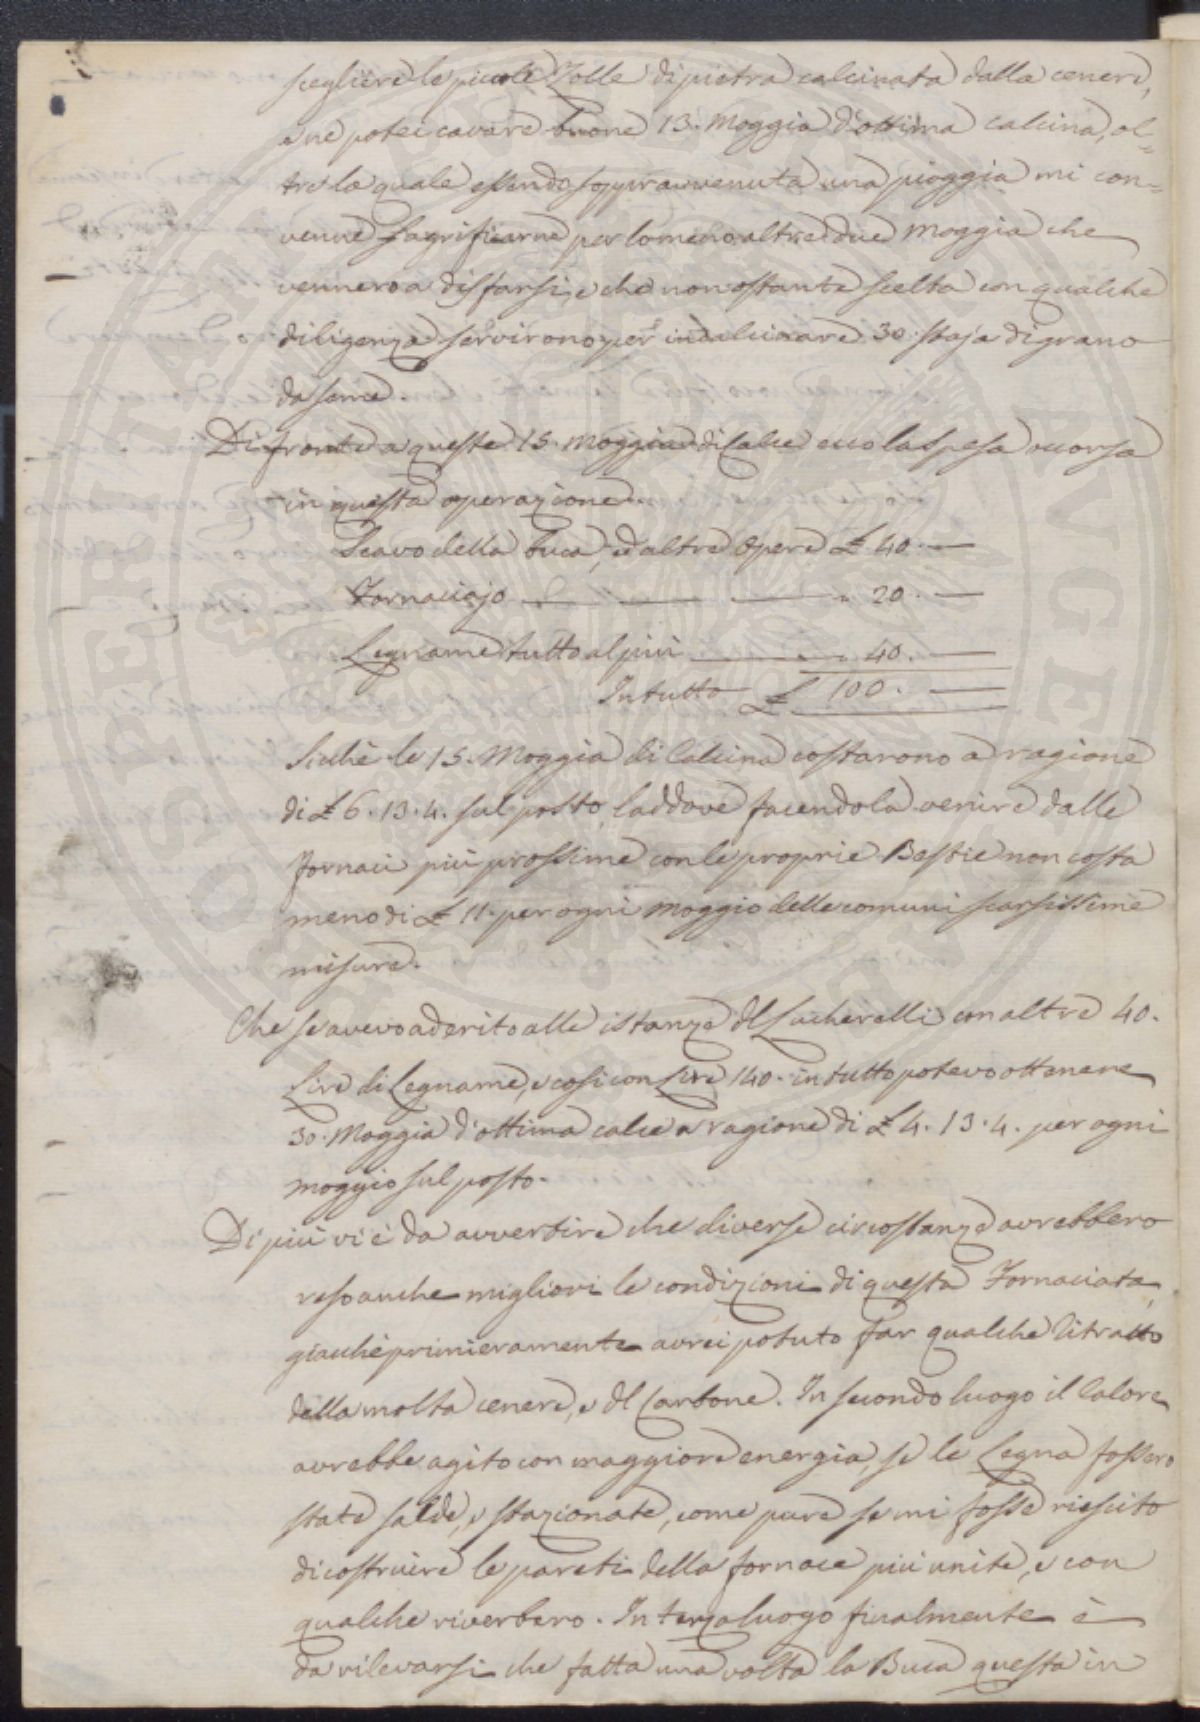 scegliere le piccole Zolle di pietra calcinata dalla cenere,
e ne potei cavare buone 13. Moggia d'ottima calcina, ol=
tre la quale essendo sopravvenuta una pioggia mi con=
venne sagrificarne per lo meno altre due Moggia che
vennero a disfarsi, e che non ostante scelta con qualche
diligenza servirono per incalcinare 30. staja di grano
da seme.
Di fronte a queste 15. Moggia di Calce ecco la spesa occorsa
in questa operazione.
Scavo della buca, ed altre Opere £ 40. —
Fornaciajo — — — " 20. —
Legname tutto al più — " 40. —
In tutto £ 100. —
Sicchè le 15. Moggia di Calcina costarono a ragione
di £ 6. 13. 4. sul posto, laddove facendola venire dalle
fornaci più prossime con le proprie Bestie non costa
meno di £ 11. per ogni Moggio delle comuni scarsissime
misure.
Che se avevo aderito alle istanze del Lucherelli con altre 40.
Lire di Legname, e così con Lire 140. in tutto potevo ottenere
30. Moggia d'ottima calce a ragione di £ 4. 13. 4. per ogni
moggio sul posto.
Di più vi è da avvertire che diverse circostanze avrebbero
reso anche migliori le condizioni di questa Fornaciata,
giacchè primieramente avrei potuto far qualche ritratto
della molta cenere, e del Carbone. In secondo luogo il Calore
avrebbe agito con maggiore energia, se le Legna fossero
state salde, e stazionate, come pure se mi fosse riescito
di costruire le pareti della fornace più unite, e con
qualche riverbero. In terzo luogo finalmente è
da rilevarsi che fatta una volta la Buca questa in